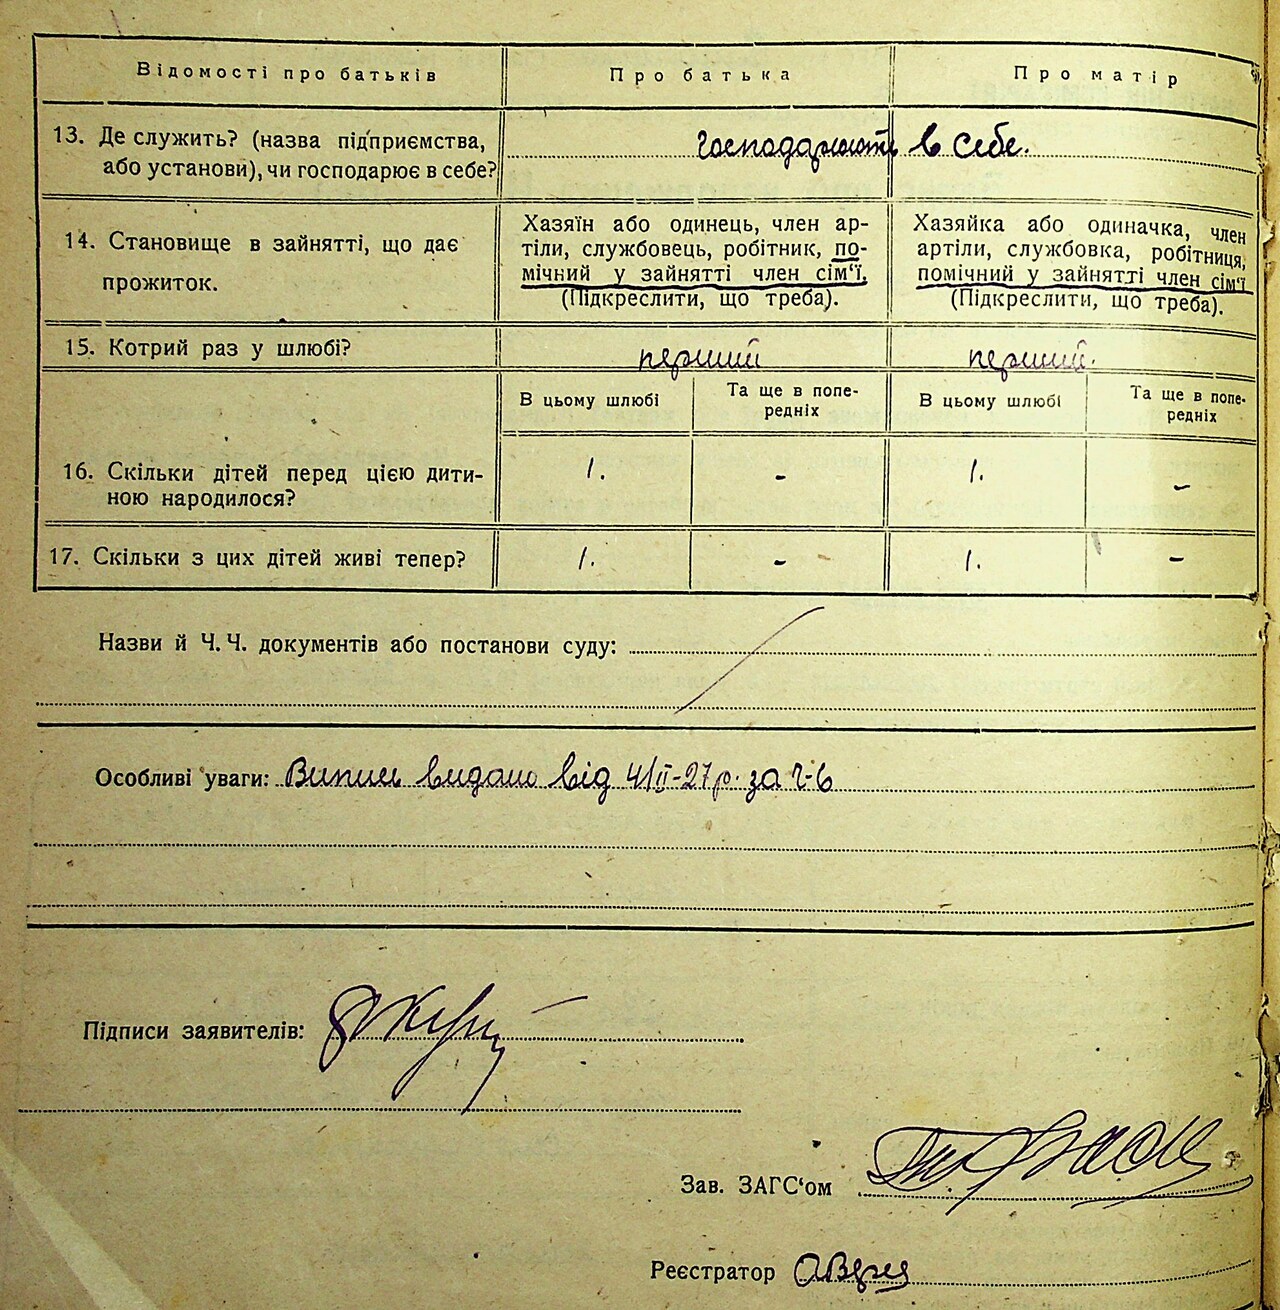 Відомості про батьків Про батька Про матір
13. Де служить? (назва підприємства,
або установи), чи господарює в себе?
Господарюють в себе.
14. Становище в зайнятті, що дає
прожиток.
Хазяїн або одинець, член ар-
тіли, службовець, робітник, по-
мічний у зайнятті член сім‘ї.
(Підкреслити, що треба).
Хазяйка або одиначка, член
артіли, службовка, робітниця,
помічний у зайнятті член сім‘ї
(Підкреслити, що треба).
15. Котрий раз у шлюбі? перший перший.
В цьому шлюбі
Та ще в попе-
редніх
В цьому шлюбі
Та ще в попе-
редніх
16. Скільки дітей перед цією дити-
ною народилося?
1. - 1. -
17. Скільки з цих дітей живі тепер? 1. - 1. -
Назви й Ч. Ч. документів або постанови суду:
Особливі уваги: Випис видано від 4/II-27р. за ч-6
Підписи заявителів:
Зав. ЗАГС‘ом
Реєстратор